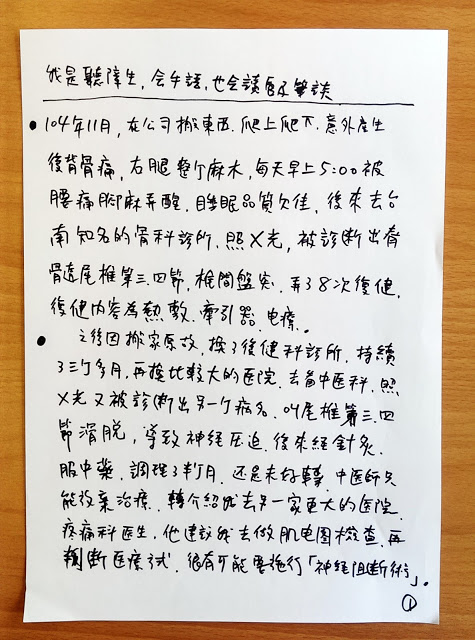 我是聽障生，会手語，也会讀唇及筆談
●104年11月，在公司搬東西．爬上爬下．意外產生
後背骨痛，右腿整个麻木，每天早上5:00被
腰痛腳麻弄醒，睡眠品質欠佳，後來去台
南知名的骨科診所．照X光，被診断出脊
骨追尾椎第三．四節，椎間盤突．弄了8次復健，
復健内容為熱敷．牽引器．电療。
●之後因搬家原故，換了復健科診所，持續
了三个多月，再換比較大的医院．去看中医科．照
X光又被診断出另一个病名．叫尾椎第三．四
節滑脱，導致神经压迫．後來经針灸．
服中藥．調理了半个月．还是未好轉．中医師只
能放棄治療．轉介紹我去另一家更大的医院．
疼痛科医生，他建議我去做肌电圖檢查．再
判断医療試．很有可能要施行「神经阻断術」。
①